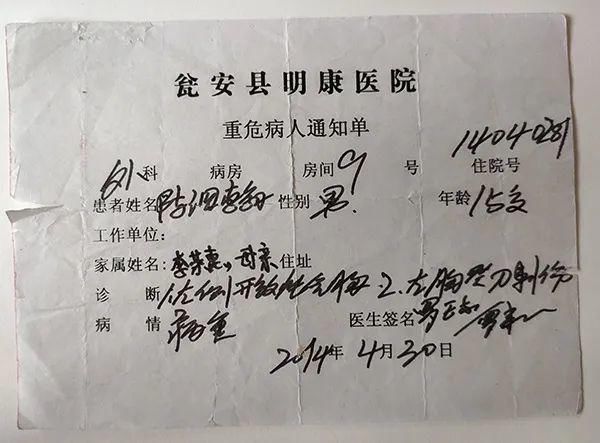 瓮安县明康医院
重危病人通知单
外科 病房 房间 9 号 1404081 住院号
患者姓名 陈泗 性别 男. 年龄 15岁
工作单位:
家属姓名: 李荣惠 母亲 住址
诊断 左侧开放性气胸 2.左胸壁刀刺伤
病情 病重 医生签名
2014年4月30日